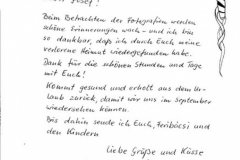 Josef!
Beim Betrachten der Fotografien werden
schöne Erinnerungen wach - und ich bin
so dankbar, daß ich durch Euch meine
verlorene Heimat wiedergefunden habe.
Dank für die schönen Stunden und Tage
mit Euch!
Kommt gesund und erholt aus dem Ur-
laub zurück, damit wir uns im September
wiedersehen können.
Bis dahin sende ich Euch, Feribácsi und
den Kindern
Liebe Grüße und Küsse